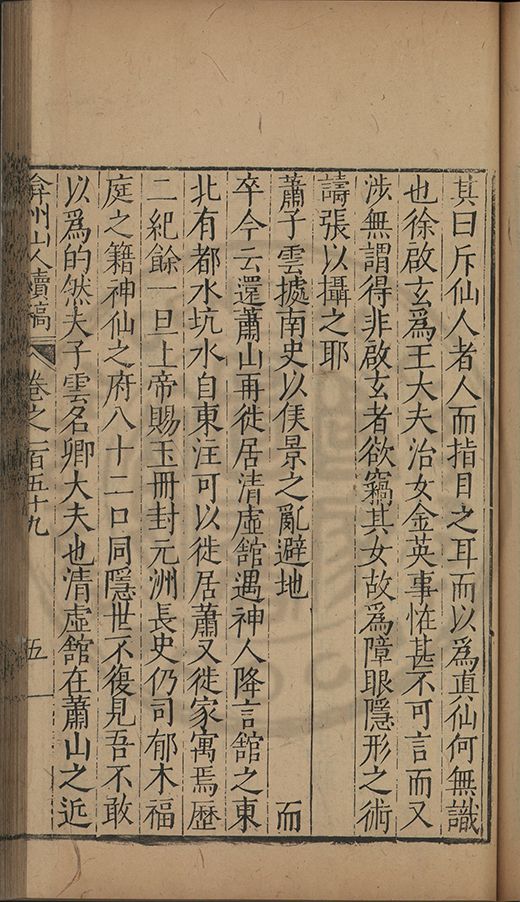 其曰斥仙人者人而指目之耳而以爲眞仙何無識
也徐啟玄爲王大夫治女金英事恠甚不可言而又
涉無謂得非啟玄者欲竊其女故爲障眼隱形之術
譸張以攝之耶
蕭子雲㨿南史以侯景之亂避地　而
卒今云還蕭山再徙居清虛館遇神人降言館之東
北有都水坑水自東注可以徙居蕭又徙家寓焉歷
二紀餘一旦上帝賜玉冊封元洲長史仍司郁木福
庭之籍神仙之府八十二口同隱世不復見吾不敢
以爲的然夫子雲名卿大夫也清虛館在蕭山之近
弇州山人續稿 卷之一百五十九 五